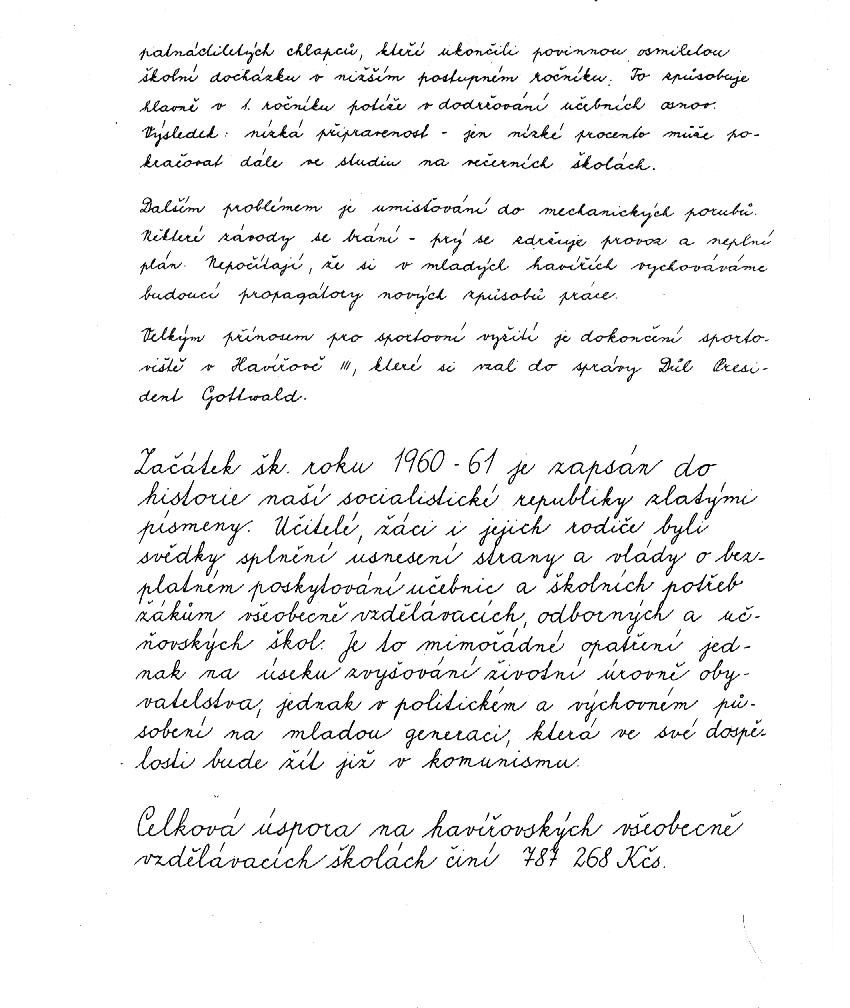 patnáctiletých chlapců, kteří ukončili povinnou osmiletou
školní docházku v nižším postupném ročníku. To způsobuje
hlavně v 1. ročníku potíže v dodržování učebních osnov.
Výsledek: nízká připravenost - jen nízké procento může po-
kračovat dále ve studiu na večerních školách.
Dalším problémem je umisťování do mechanických porubů.
Některé závody se brání - prý se zdržuje provoz a neplní
plán. Nepočítají, že si v mladých havířích vychováváme
budoucí propagátory nových způsobů práce.
Velkým přínosem pro sportovní vyžití je dokončení sporto-
viště v Havířově III, které si vzal do správy Důl Presi-
dent Gottwald.
Začátek šk. roku 1960-61 je zapsán do
historie naší socialistické republiky zlatými
písmeny. Učitelé, žáci i jejich rodiče byli
svědky splnění usnesení strany a vlády o bez-
platném poskytování učebnic a školních potřeb
žákům všeobecně vzdělávacích, odborných a uč-
ňovských škol. Je to mimořádné opatření jed-
nak na úseku zvyšování životní úrovně oby-
vatelstva, jednak v politickém a výchovném pů-
sobení na mladou generaci, která ve své dospě-
losti bude žít již v komunismu.
Celková úspora na havířovských všeobecně
vzdělávacích školách činí 787 268 Kčs.